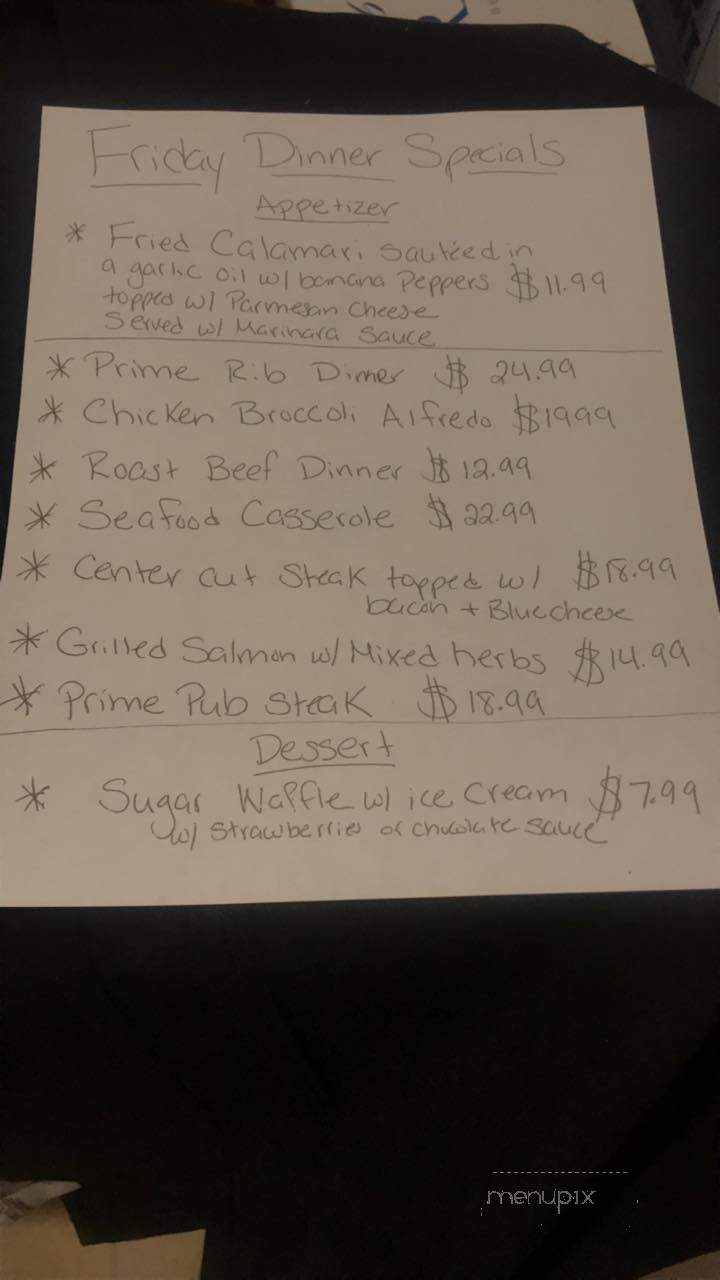 Friday Dinner Specials
Appetizer
* Fried Calamari sautéed in
a garlic oil w/ banana Peppers $11.99
topped w/ Parmesan Cheese
Served w/ Marinara Sauce
* Prime Rib Dinner $ 24.99
* Chicken Broccoli Alfredo $1999
* Roast Beef Dinner $ 12.99
* Seafood Casserole $ 22.99
* Center cut Steak topped w/ $18.99
bacon + Bluecheese
* Grilled Salmon w/ Mixed herbs $14.99
* Prime Pub Steak $ 18.99
Dessert
* Sugar Waffle w/ ice Cream $7.99
w/ Strawberries or chocolate Sauce
menupix